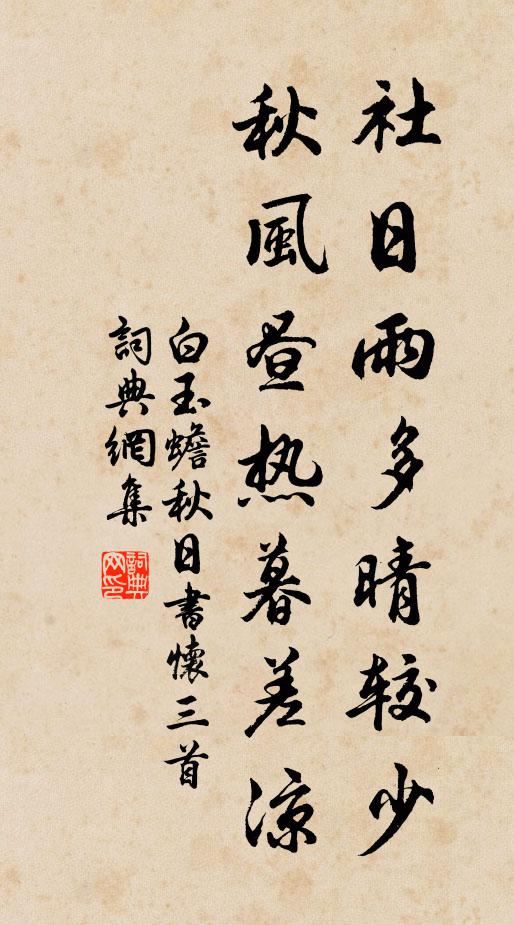 社日雨多晴較少
秋風昼热暮差凉
白玉蟾秋日書懷三首
詞典網集
詞典網印